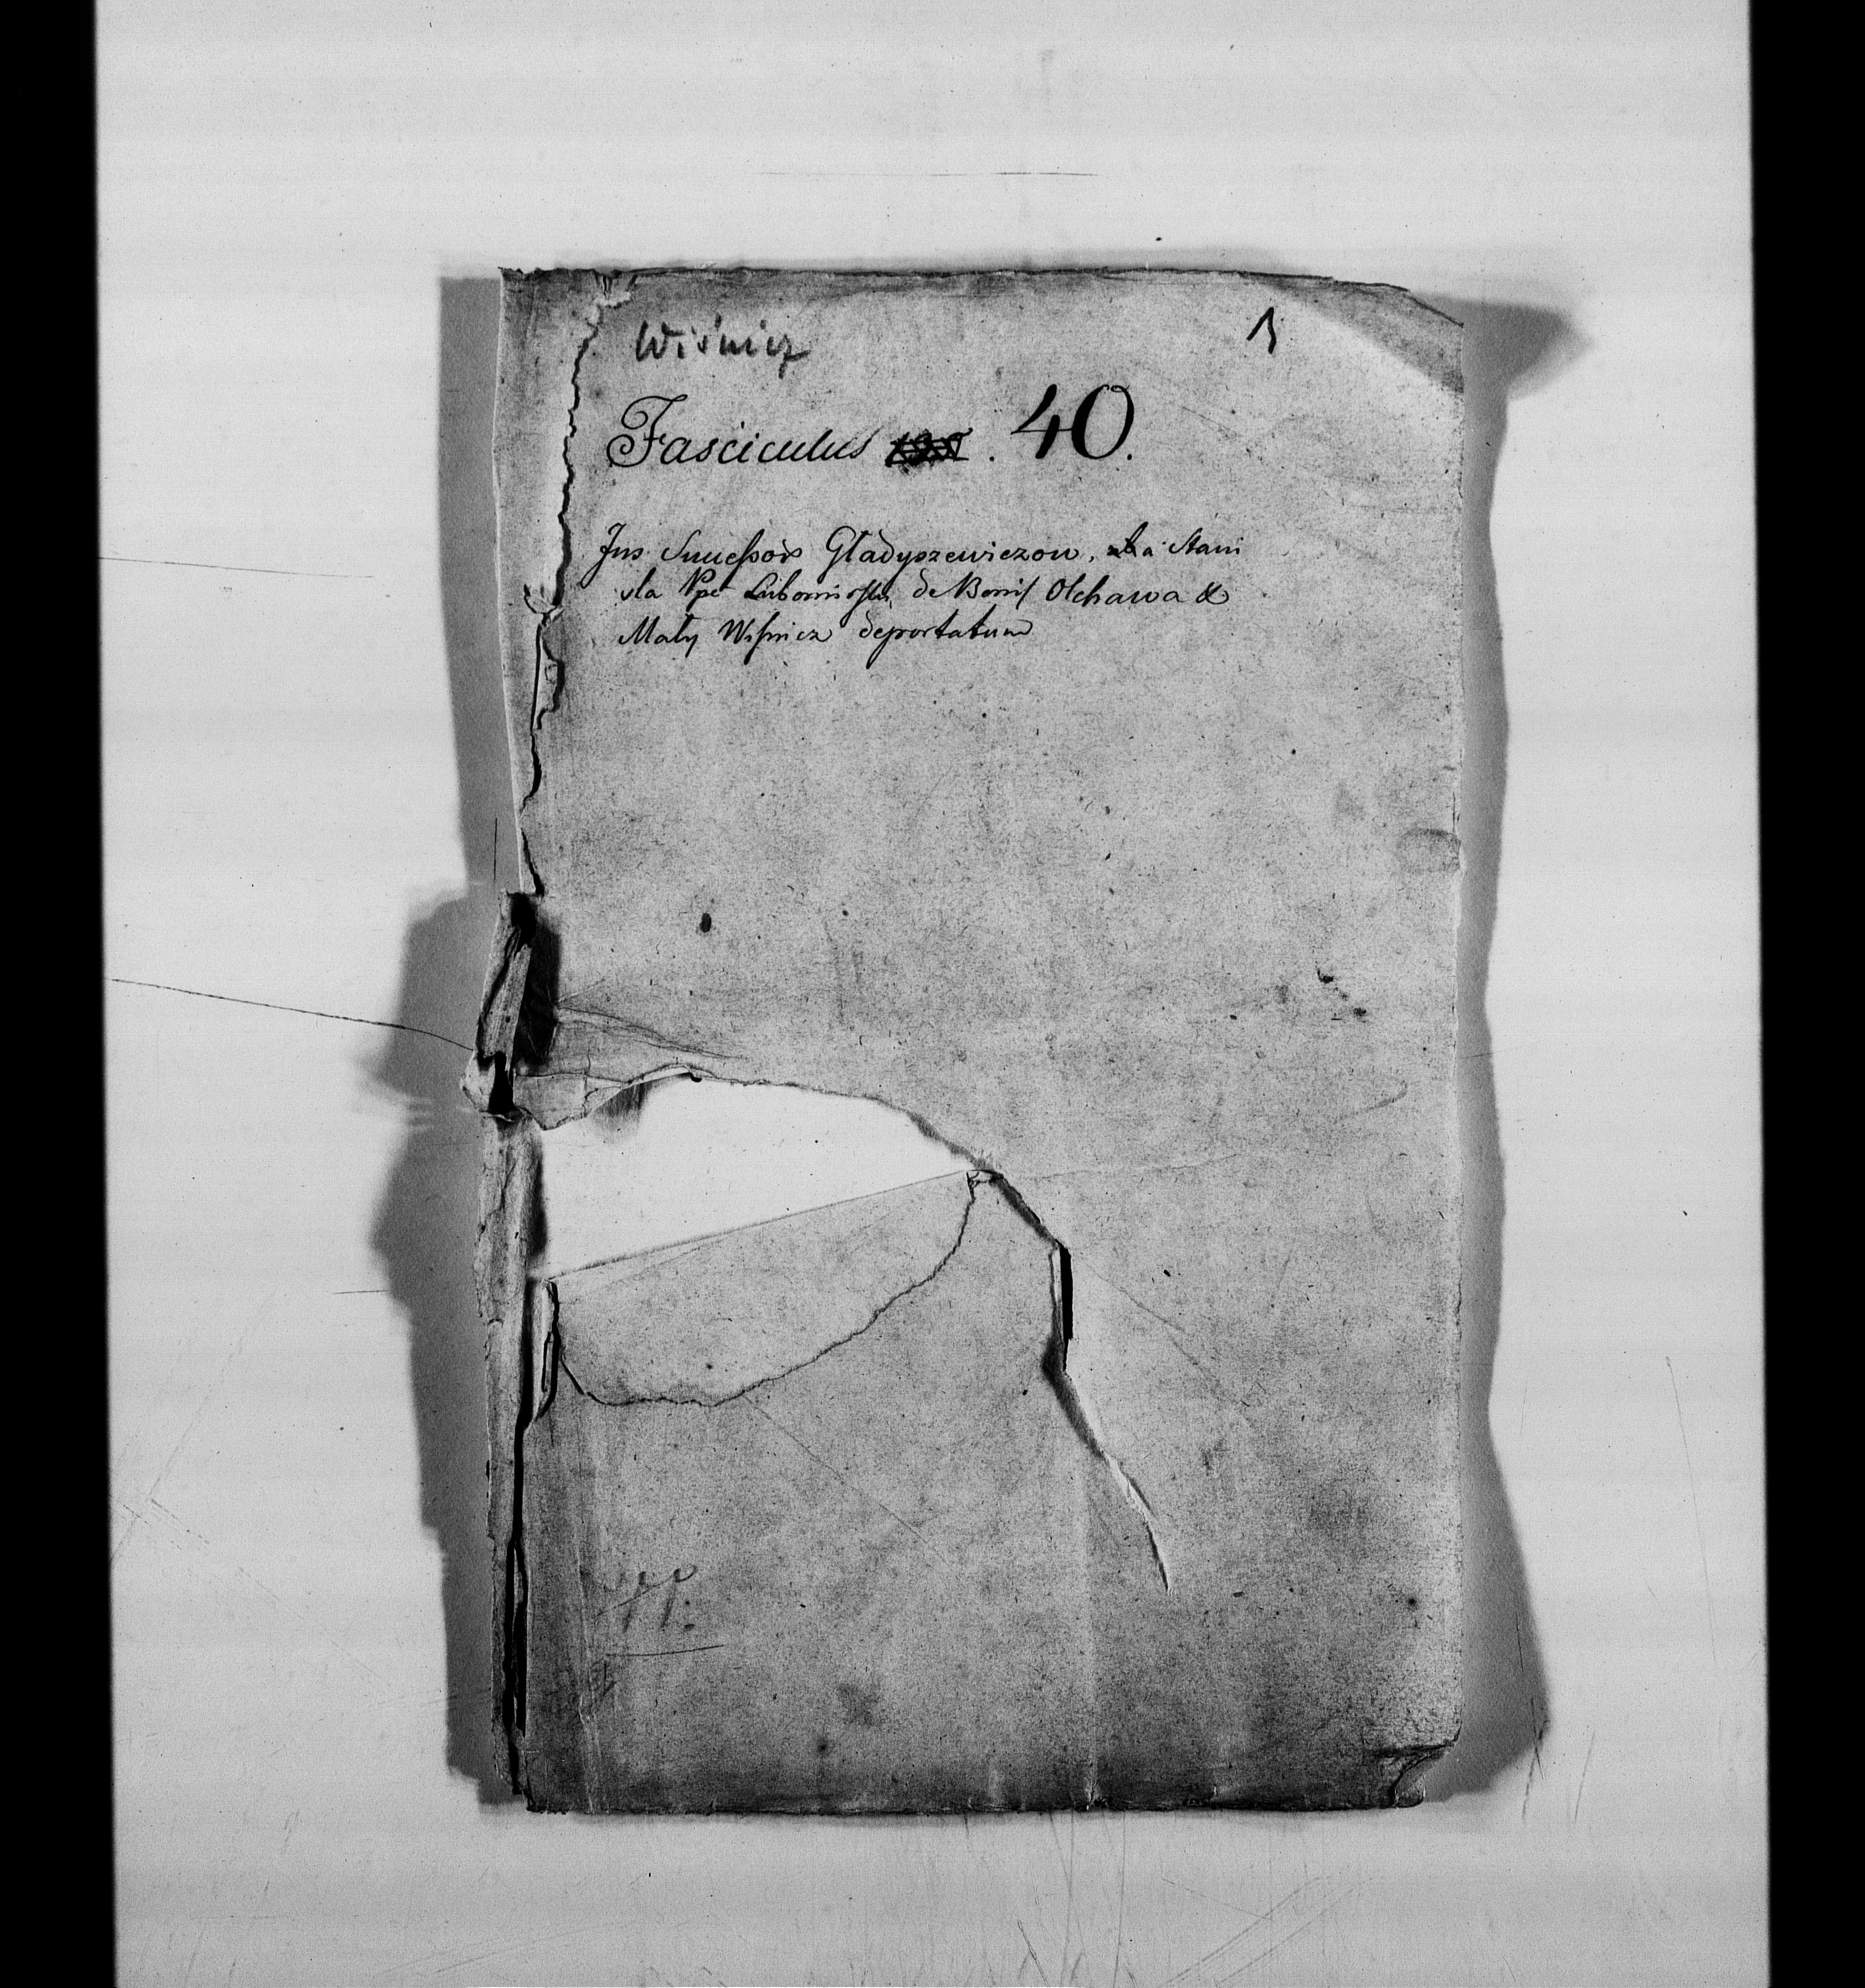 Wiśnicz
1
Fasciculus . 40.
Jus Succeßors Gładyszewiczow, a Stani
sla Lubomirski, de Bonis Olchawa &
Mały Wiśnicz deportatum